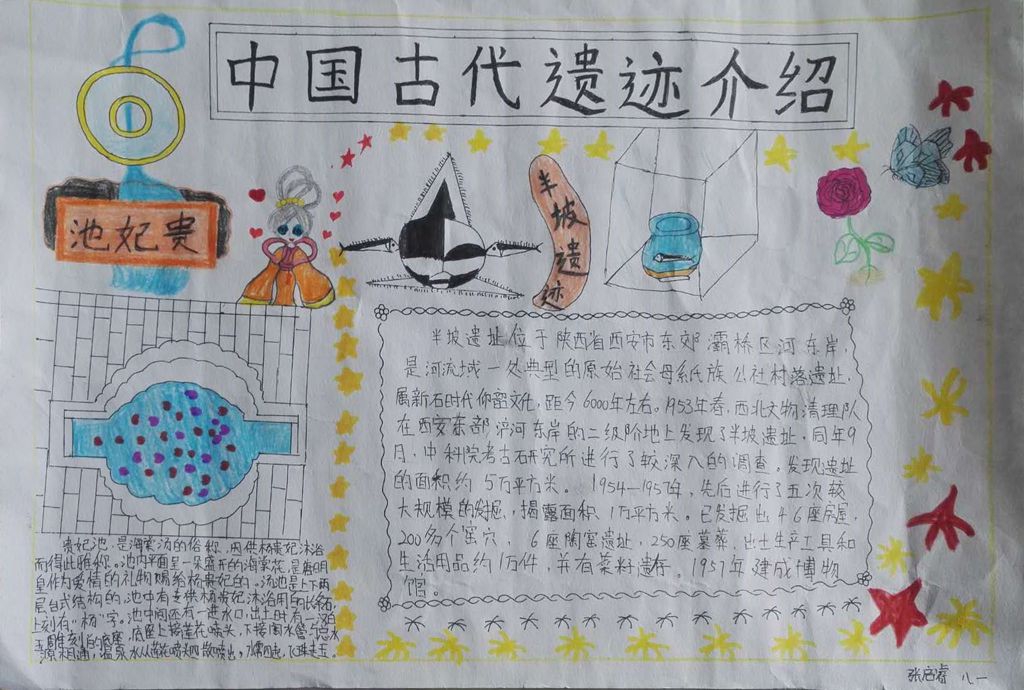 中国古代遗迹介绍
池妃贵
半坡遗迹
半坡遗址位于陕西省西安市东郊灞桥区河东岸,
是河流域一处典型的原始社会母系氏族公社村落遗址,
属新石时代仰韶文化,距今6000年左右。1953年春,西北文物清理队
在西安东部浐河东岸的二级阶地上发现了半坡遗址,同年9
月,中科院考古研究所进行了较深入的调查。发现遗址
的面积约5万平方米。1954—1957年,先后进行了五次较
大规模的发掘,揭露面积1万平方米。已发掘出46座房屋,
200多个窖穴,6座陶窑遗址,250座墓葬,出土生产工具和
生活用品约1万件,并有菜料遗存。1957年建成博物
馆。
贵妃池,是海棠汤的俗称,因供杨贵妃沐浴
而得此雅称。池内平面呈一朵盛开的海棠花,是唐明
皇作为爱情的礼物赐给杨贵妃的。汤池是上下两
层台式结构的,池中有专供杨贵妃沐浴用的
上刻有"杨"字。池中间还有一进水口,出土时有一
底座上接莲花喷头,下接陶水管与总水
源相通,温泉水从莲花喷头四散喷出,
张启睿 八一